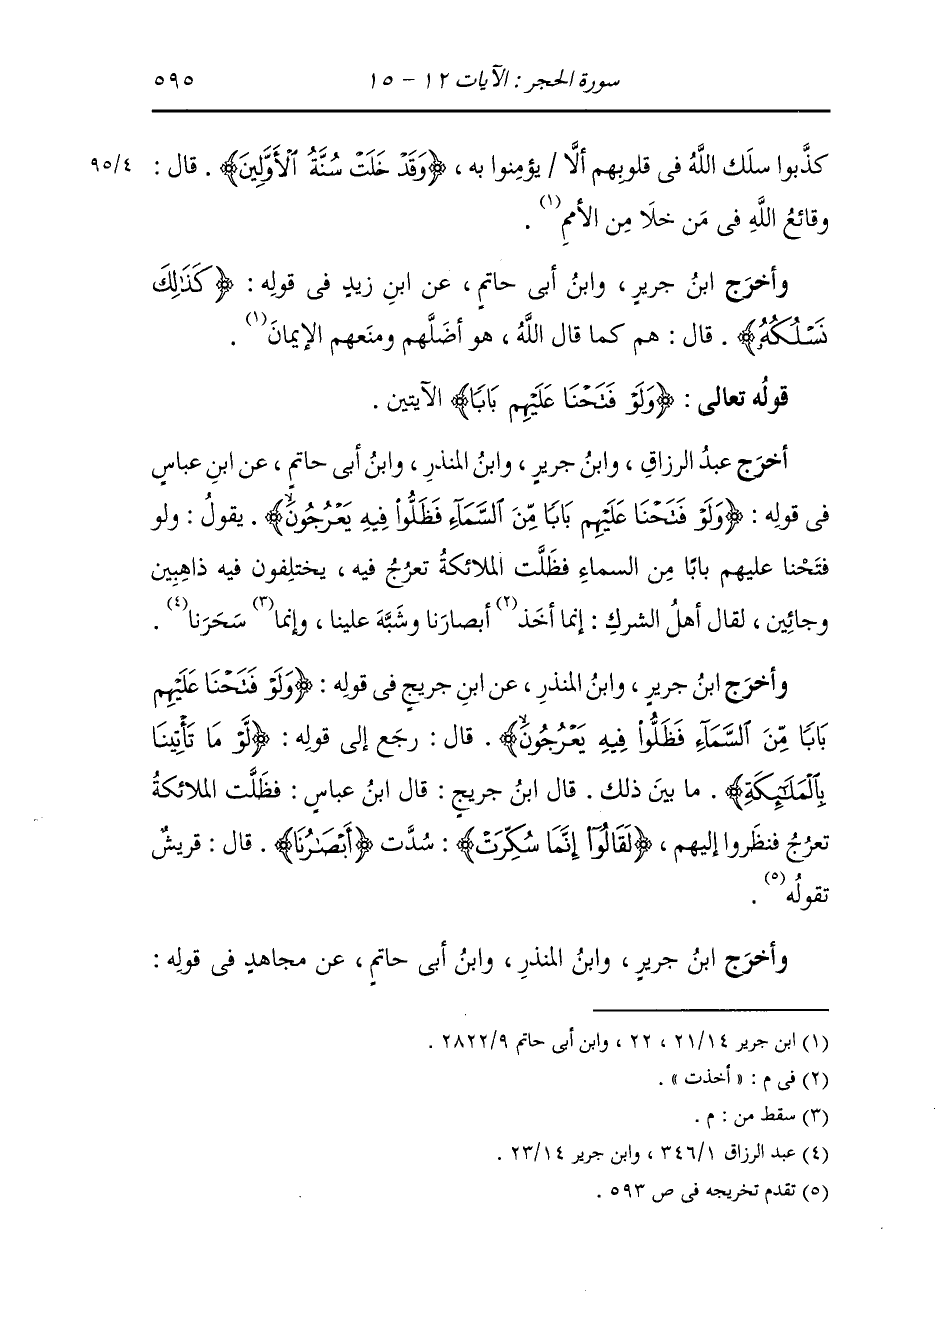 سورة الحجر : الآيات ١٢ - ١٥ ٥٩٥
كذَّبوا سلَك اللَّهُ فى قلوبِهم ألَّا / يؤمِنوا به ، ﴿وَقَدْ خَلَتْ سُنَّةُ ٱلْأَوَّلِينَ﴾ . قال : ٩٥/٤
وقائعُ اللَّهِ فى مَن خلَا مِن الأممِ(١) .
وأخرَج ابنُ جريرٍ ، وابنُ أبى حاتمٍ ، عن ابنِ زيدٍ فى قولِه : ﴿كَذَٰلِكَ
نَسْلُكُهُۥ﴾ . قال : هم كما قال اللَّهُ ، هو أضَلَّهم ومنَعهم الإيمانَ(١) .
قولُه تعالى : ﴿وَلَوْ فَتَحْنَا عَلَيْهِم بَابًا﴾ الآيتين .
أخرَج عبدُ الرزاقِ ، وابنُ جريرٍ ، وابنُ المنذرِ ، وابنُ أبى حاتمٍ ، عن ابنِ عباسٍ
فى قولِه : ﴿وَلَوْ فَتَحْنَا عَلَيْهِم بَابًا مِّنَ ٱلسَّمَآءِ فَظَلُّواْ فِيهِ يَعْرُجُونَۙ﴾ . يقولُ : ولو
فتَحْنا عليهم بابًا مِن السماءِ فظَلَّت الملائكةُ تعرُجُ فيه ، يختلِفون فيه ذاهِبِين
وجائِين ، لقال أهلُ الشركِ : إنما أخَذ(٢) أبصارَنا وشَبَّهَ علينا ، وإنما(٣) سَحَرَنا(٤) .
وأخرَج ابنُ جريرٍ ، وابنُ المنذرِ ، عن ابنِ جريجٍ فى قولِه : ﴿وَلَوْ فَتَحْنَا عَلَيْهِم
بَابًا مِّنَ ٱلسَّمَآءِ فَظَلُّواْ فِيهِ يَعْرُجُونَۙ﴾ . قال : رجَع إلى قولِه : ﴿لَّوْ مَا تَأْتِينَا
بِٱلْمَلَٰٓئِكَةِ﴾ . ما بينَ ذلك . قال ابنُ جريجٍ : قال ابنُ عباسٍ : فظَلَّت الملائكةُ
تعرُجُ فنظَروا إليهم ، ﴿لَقَالُوٓاْ إِنَّمَا سُكِّرَتْ﴾ : سُدَّت ﴿أَبْصَٰرُنَا﴾ . قال : قريشٌ
تقولُه(٥) .
وأخرَج ابنُ جريرٍ ، وابنُ المنذرِ ، وابنُ أبى حاتمٍ ، عن مجاهدٍ فى قولِه :
(١) ابن جرير ٢١/١٤ ، ٢٢ ، وابن أبى حاتم ٢٨٢٢/٩ .
(٢) فى م : « أخذت » .
(٣) سقط من : م .
(٤) عبد الرزاق ٣٤٦/١ ، وابن جرير ٢٣/١٤ .
(٥) تقدم تخريجه فى ص ٥٩٣ .